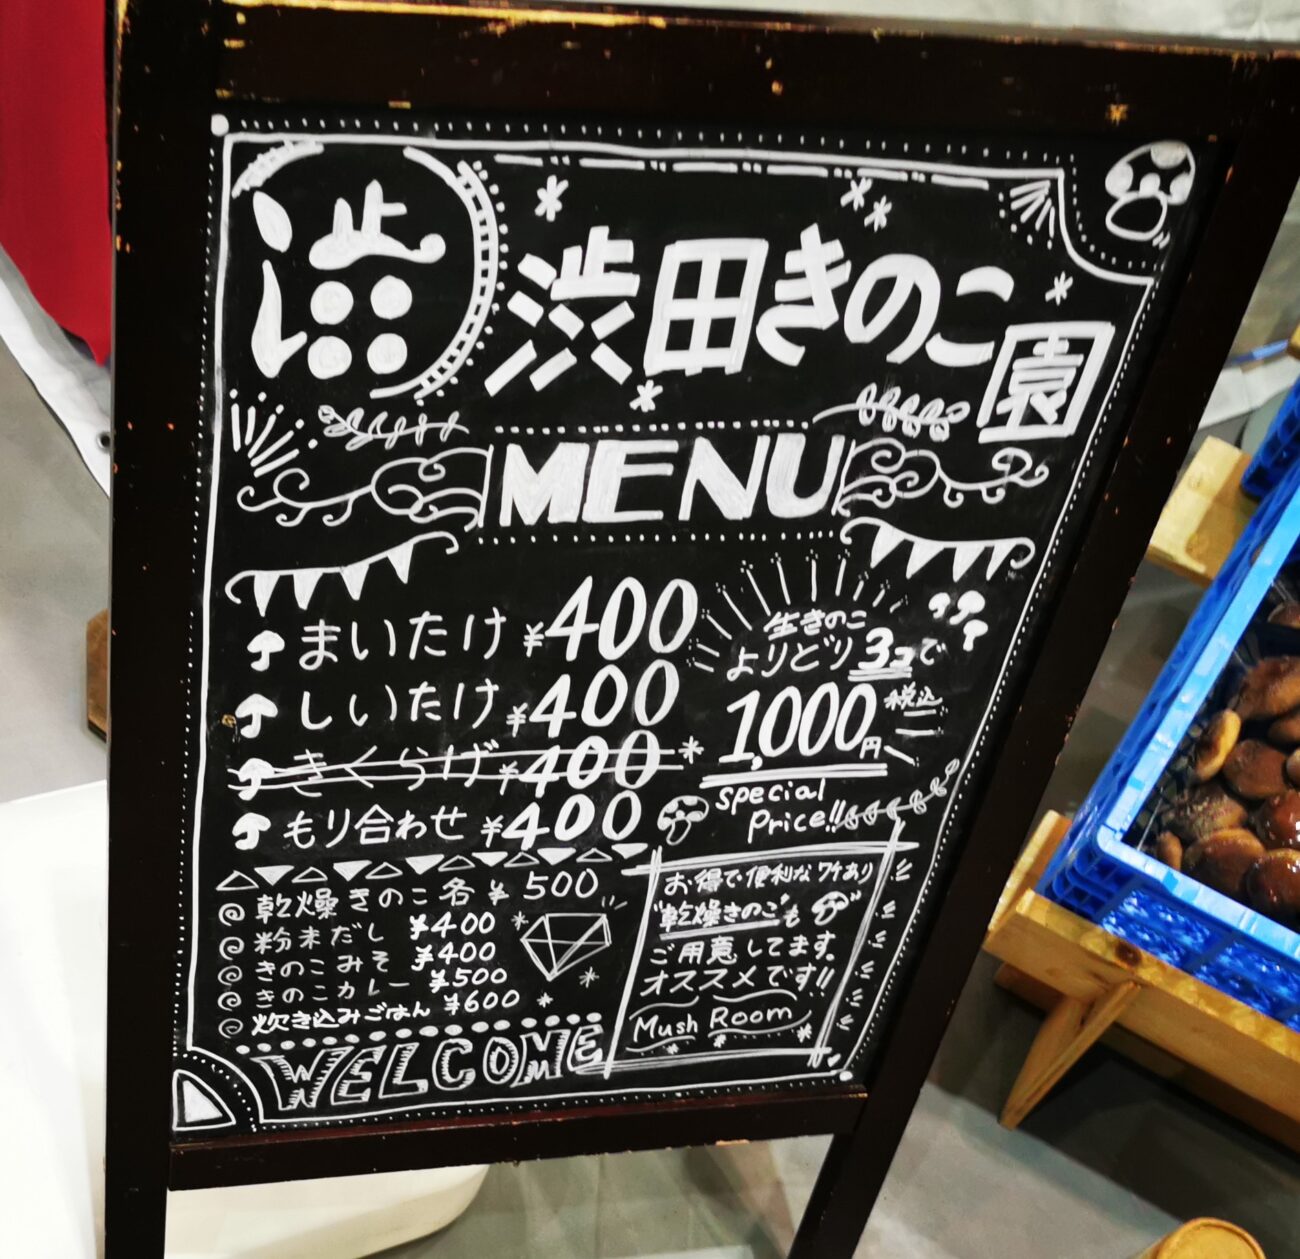 渋
渋田きのこ園
MENU
まいたけ ¥400
しいたけ ¥400
きくらげ ¥400
もり合わせ ¥400
生きのこ
よりどり3コで
1,000円 税込
special
Price!!
乾燥きのこ各 ¥500
粉末だし ¥400
きのこみそ ¥400
きのこカレー ¥500
炊き込みごはん ¥600
お得で便利なワケあり
"乾燥きのこ"も
ご用意してます。
オススメです!!
Mush Room
WELCOME